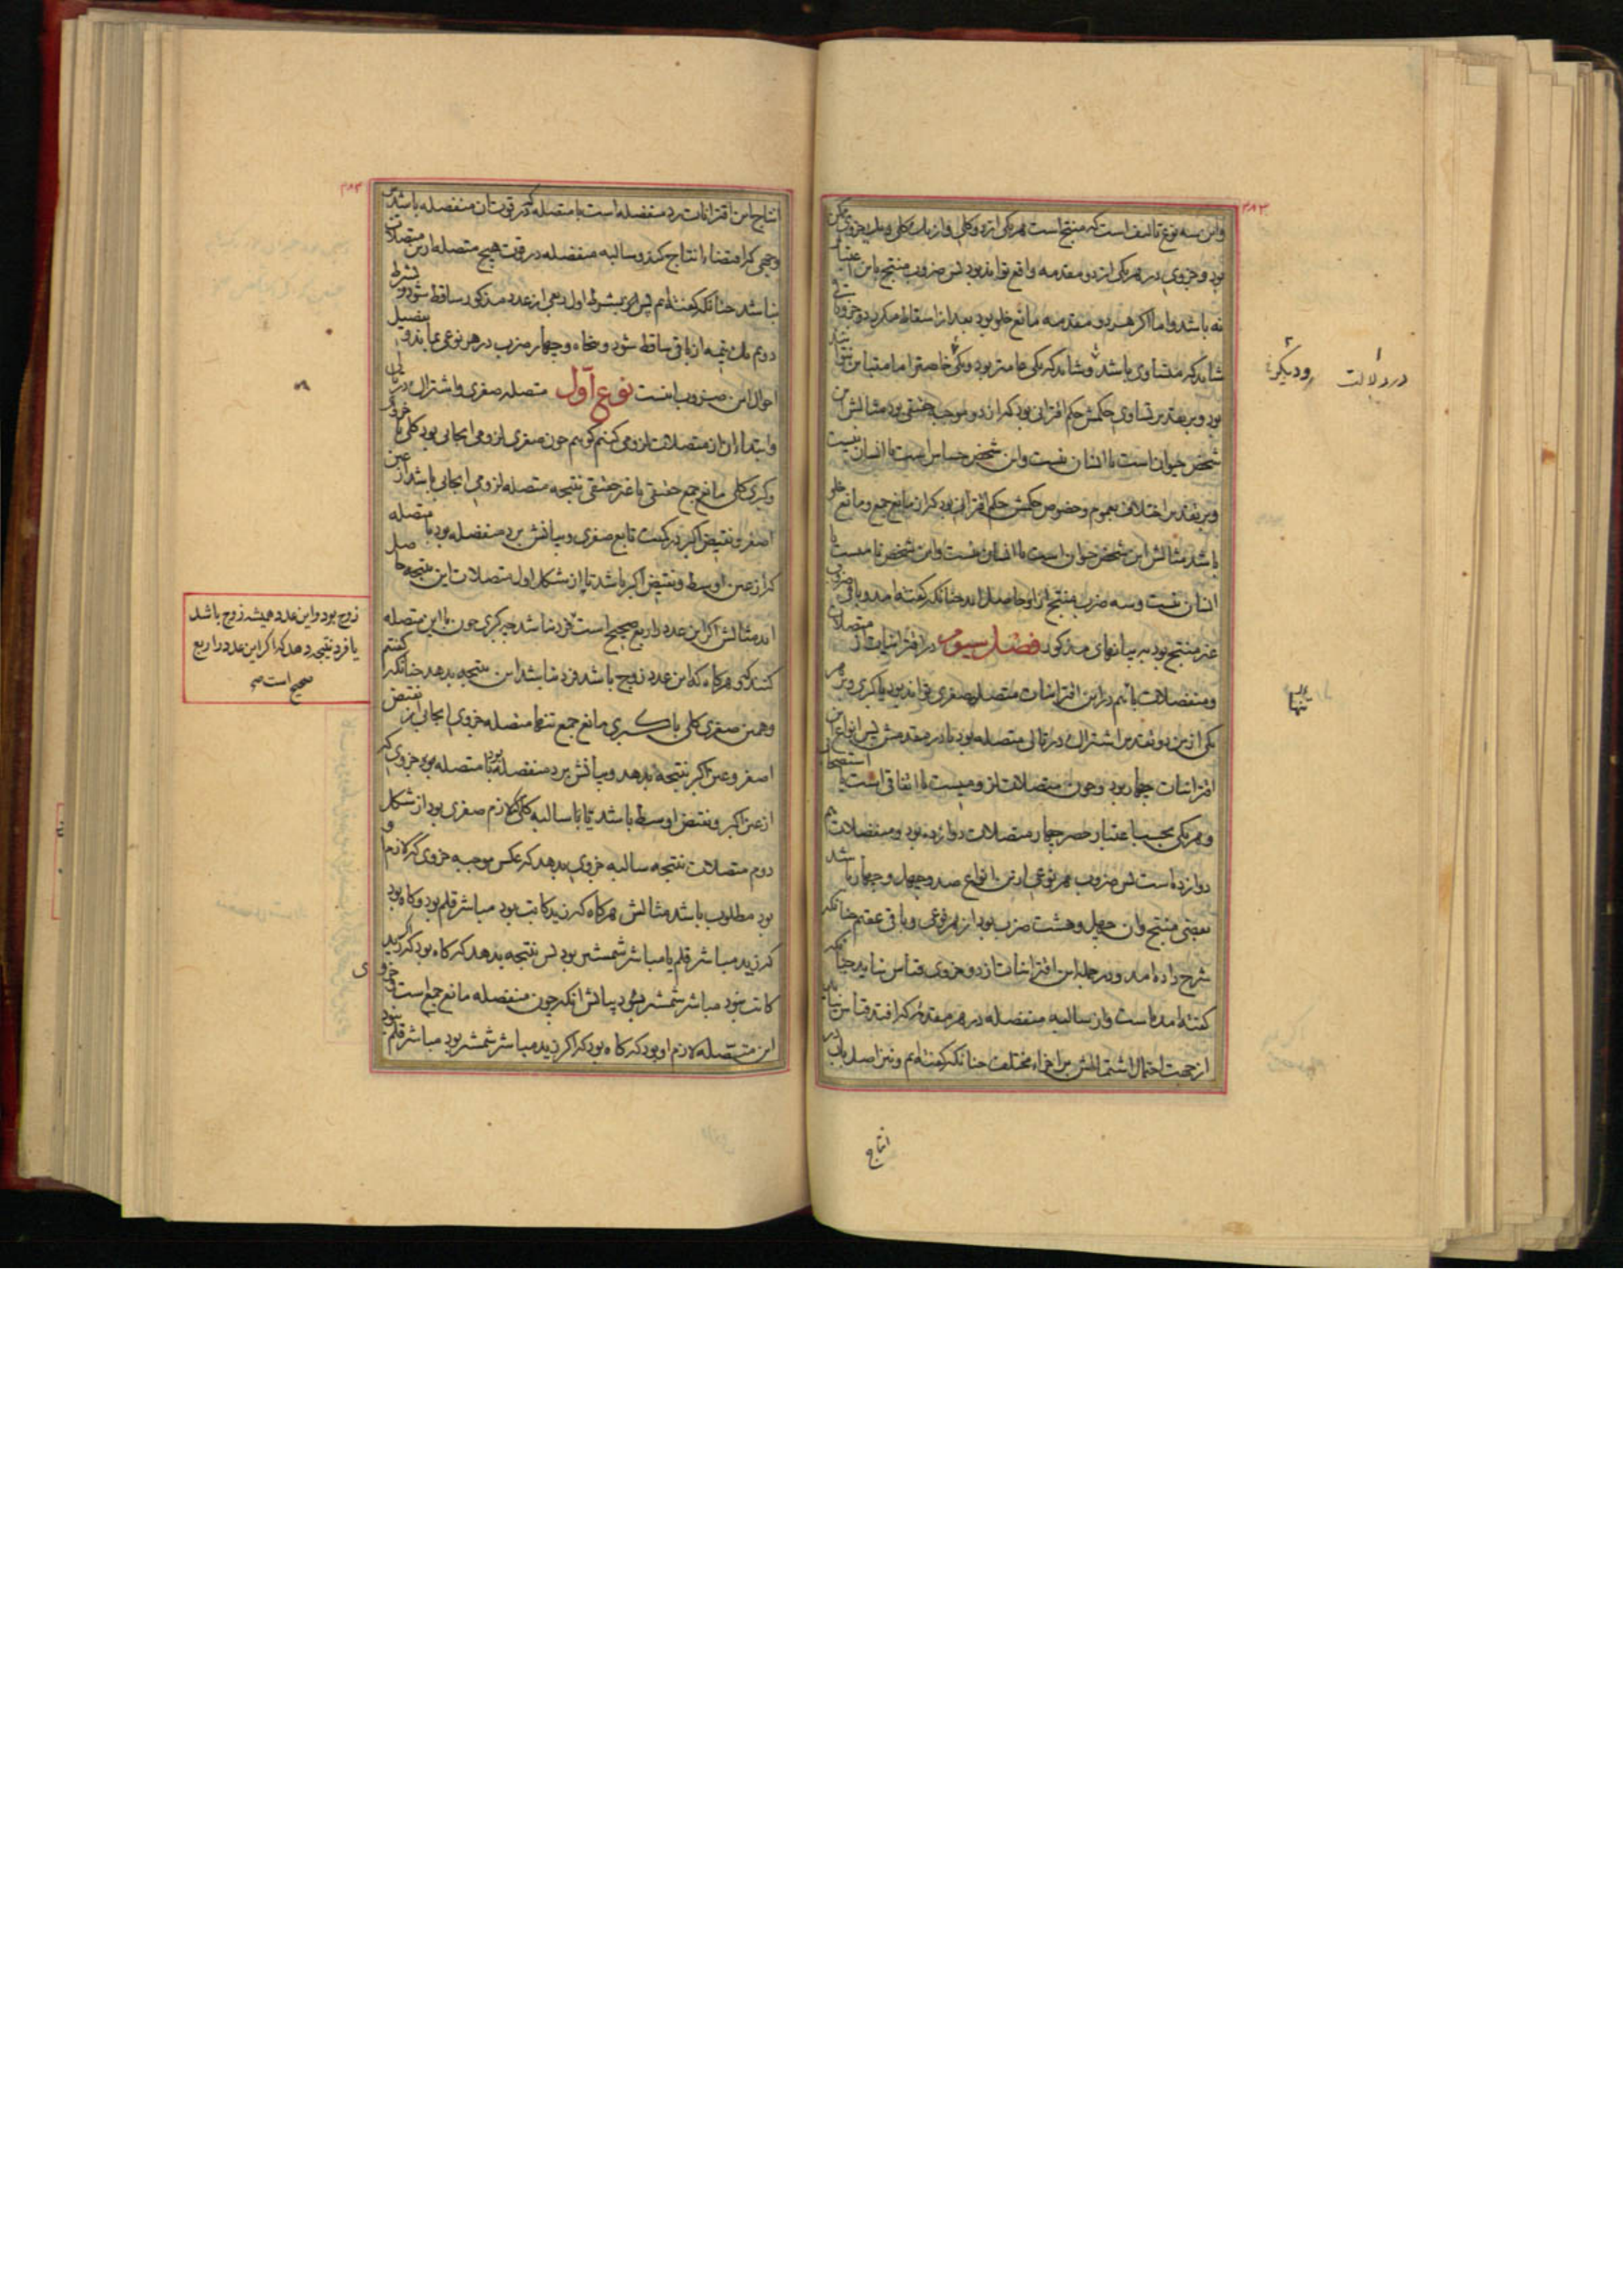 واین سه نوع تالیف است که منتج است هریکی از دو کلی و از یک کلی و یک جزوی ممکن
بود و جزوی در هر یکی از دو مقدمه واقع تواند بود پس ضروب منتج باین اعتبار
نه باشد و اما اگر هر دو مقدمه مانع خلو بود بعد از اسقاط مکرر دو جزو باقی
شاید که متساوی باشند و شاید که یکی عامتر بود و یکی خاصتر اما متباین نتواند
بود و بر تقدیر تساوی حکمش حکم اقترانی بود که از دو موجب حقیقی بود مثالش این
شخص حیوان است یا انسان نیست و این شخص حساس است یا انسان نیست
و بر تقدیر اختلاف بعموم و خصوص حکمش حکم اقترانی بود که از مانع جمع و مانع خلو
باشد مثالش این شخص حیوان است یا انسان نیست و این شخص نامیست یا
انسان نیست و سه ضرب منتج از او حاصل اید چنانکه گفته امد و باقی ضروب
غیر منتج بود به بیانهای مذکور فصل سیوم در اقترانیات از متصلات
و منفصلات باشد در این اقترانیات متصله صغری تواند بود یا کبری و بر هر
یکی ازین دو تقدیر اشتراک در تالی متصله بود یا در مقدمش پس انواع این
اقترانیات چهار بود و چون متصلات لزومیست یا اتفاقی است یا استصحابی
و هر یکی بحسب اعتبار حصر چهار متصلات دوازده بود و منفصلات هم
دوازده است پس ضروب هر نوعی ازین انواع صد و چهل و چهار باشد
بعضی منتج وان چهل و هشت ضرب بود از هر نوعی و باقی عقیم چنانکه
شرح داده امد و در جمله این اقترانیات از دو جزوی قیاس نیاید چنانکه
گفته امده است و از سالبه منفصله در هر مقدمه که افتد قیاس نیاید
از جهت احتمال اشتمالش بر اجزاء مختلف چنانکه گفته ایم و نیز اصل باب در
در دلالت
ودیگر
تنها
انتاج
انتاج این اقترانات رد منفصله است با متصله که در قوت ان منفصله باشد
بر وجهی که اقتضاء انتاج کند و سالبه منفصله در قوت هیچ متصله از این متصلات
نباشد چنانکه گفته ایم پس بشرط اول ربعی از عدد مذکور ساقط شود و بشرط
دوم یک نیمه از باقی ساقط شود و پنجاه و چهار ضرب در هر نوعی بماند و تفصیل
احوال این ضروب اینست نوع اول متصله صغری و اشتراک در تالی
و ابتدا ازان از متصلات لزومی کنیم گوییم چون صغری لزومی ایجابی بود کلی یا جزوی
و کبری کلی مانع جمع حقیقی یا غیر حقیقی نتیجه متصله لزومی ایجابی باشد از عین
اصغر و نقیض اکبر در کمیت تابع صغری و بیانش برد منفصله بود با متصله
که از عین اوسط و نقیض اکبر باشد تا از شکل اول متصلات این نتیجه حاصل
اید مثالش اگر این عدد را ربع صحیح است فرد نباشد چه کبری چون با این متصله
کنند که هرگاه که این عدد زوج باشد فرد نباشد این نتیجه بدهد چنانکه گفتیم
و همین صغری کلی با کبری مانع جمع تنها متصله جزوی ایجابی از نقیض
اصغر و عین اکبر نتیجه بدهد و بیانش برد منفصله بود با متصله بود جزوی که
از عین اکبر و نقیض اوسط باشد تا با سالبه کلی که لازم صغری بود از شکل
دوم متصلات نتیجه سالبه جزوی بدهد که عکس موجبه جزوی که لازم او
بود مطلوب باشد مثالش هرگاه که زید کاتب بود مباشر قلم بود و گاه بود
که زید مباشر قلم یا مباشر شمشیر بود پس نتیجه بدهد که گاه بود که اگر زید
کاتب نبود مباشر شمشیر بود بیانش انکه چون منفصله مانع جمع است جزوی
این متصله لازم او بود که گاه بود که اگر زید مباشر شمشیر بود مباشر قلم نبود
زوج بود و این عدد همیشه زوج باشد
یا فرد نتیجه دهد که اگر این عدد را ربع
صحیح است صح